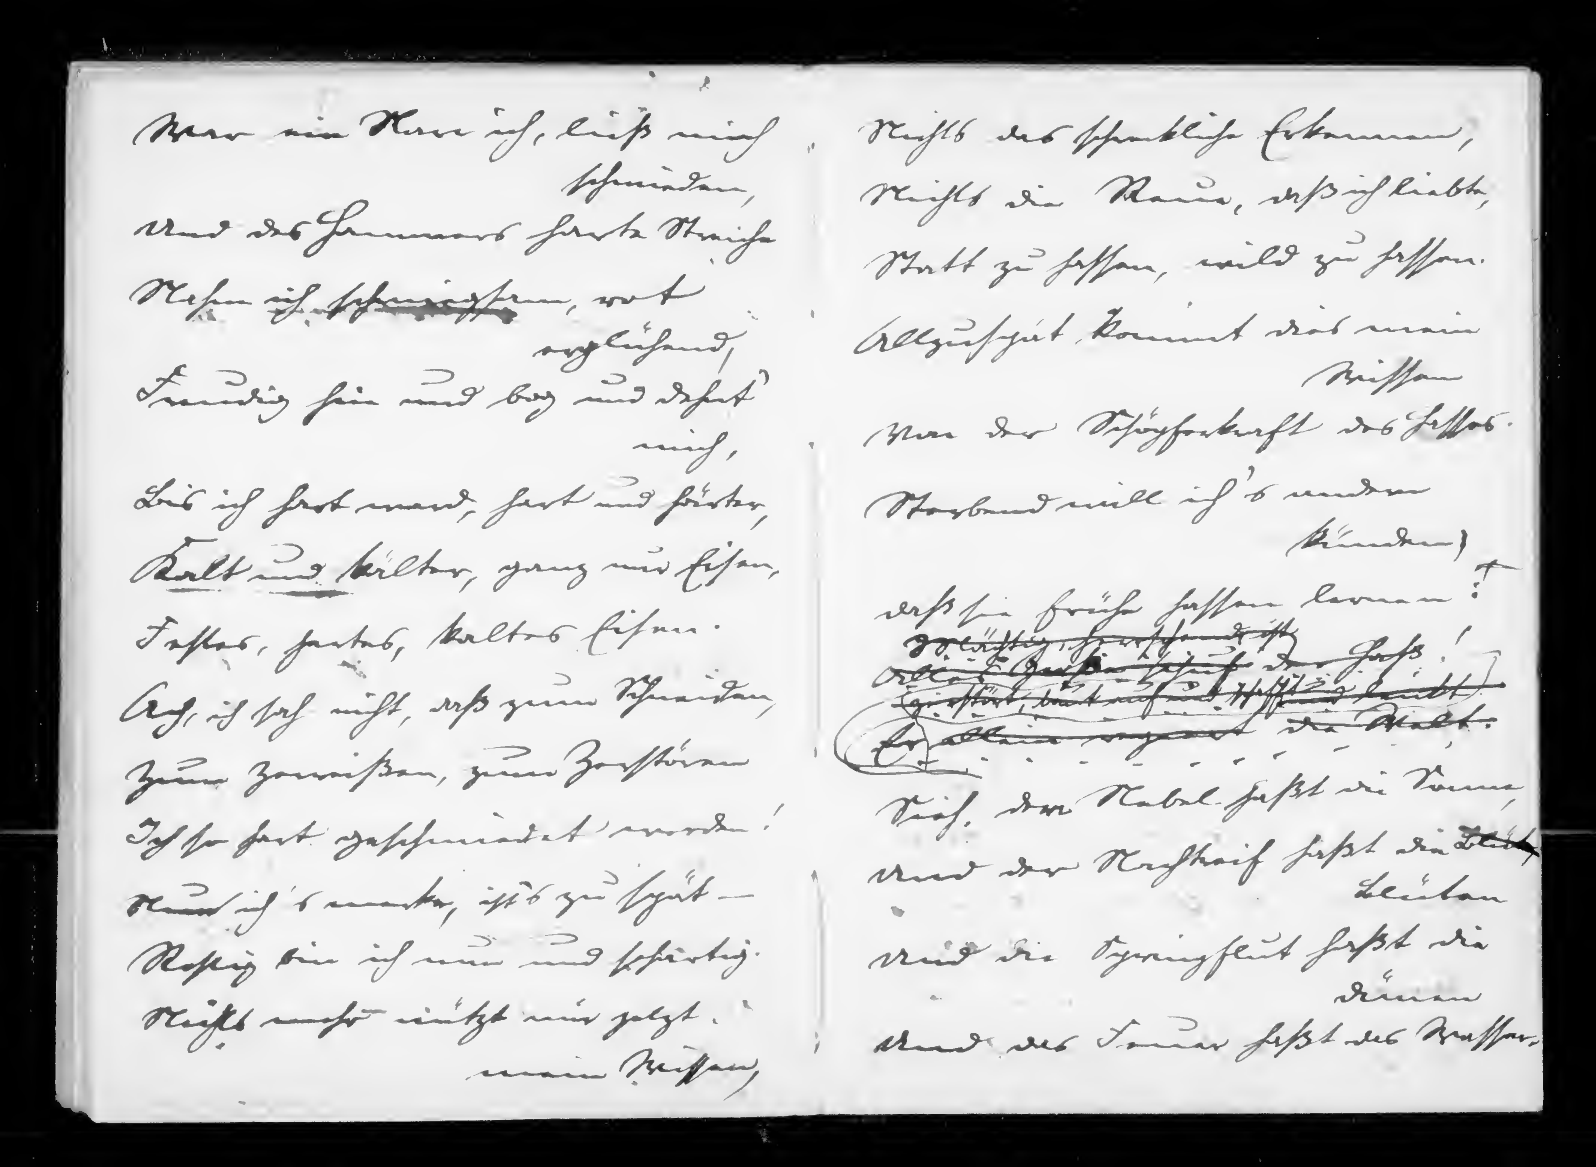 War ein Narr ich, ließ mich
schmieden,
Und des Hammers harte Streiche
Nahm ich schmiegsam, rot
erglühend,
Freudig hin und bog und dehnt'
mich,
Bis ich hart ward, hart und härter,
Kalt und kälter, ganz nur Eisen,
Festes, hartes, kaltes Eisen.
Ach, ich sah nicht, daß zum Schneiden,
Zum Zerreißen, zum Zerstören
Ich so hart geschmiedet worden!
Nun ich's merke, ist's zu spät –
Rostig bin ich nun und schartig.
Nichts mehr nützt mir jetzt
mein Wissen,
Nichts das schreckliche Erkennen,
Nichts die Reue, daß ich liebte,
Statt zu hassen, wild zu hassen.
Allzuspät kommt dies mein
Wissen
Von der Schöpferkraft des Hasses.
Sterbend will ich's andern
künden,
daß sie frühe hassen lernen!
Mächtig, herrschend ist
Alles Große schuf der Haß!
zerstört, baut auf und schafft und
Er allein regiert die Welt.
Sieh, der Nebel haßt die Sonne,
Und der Nachtreif haßt die Blüten
Blüten
Und die Springflut haßt die
Dünen
Und das Feuer haßt das Wasser.